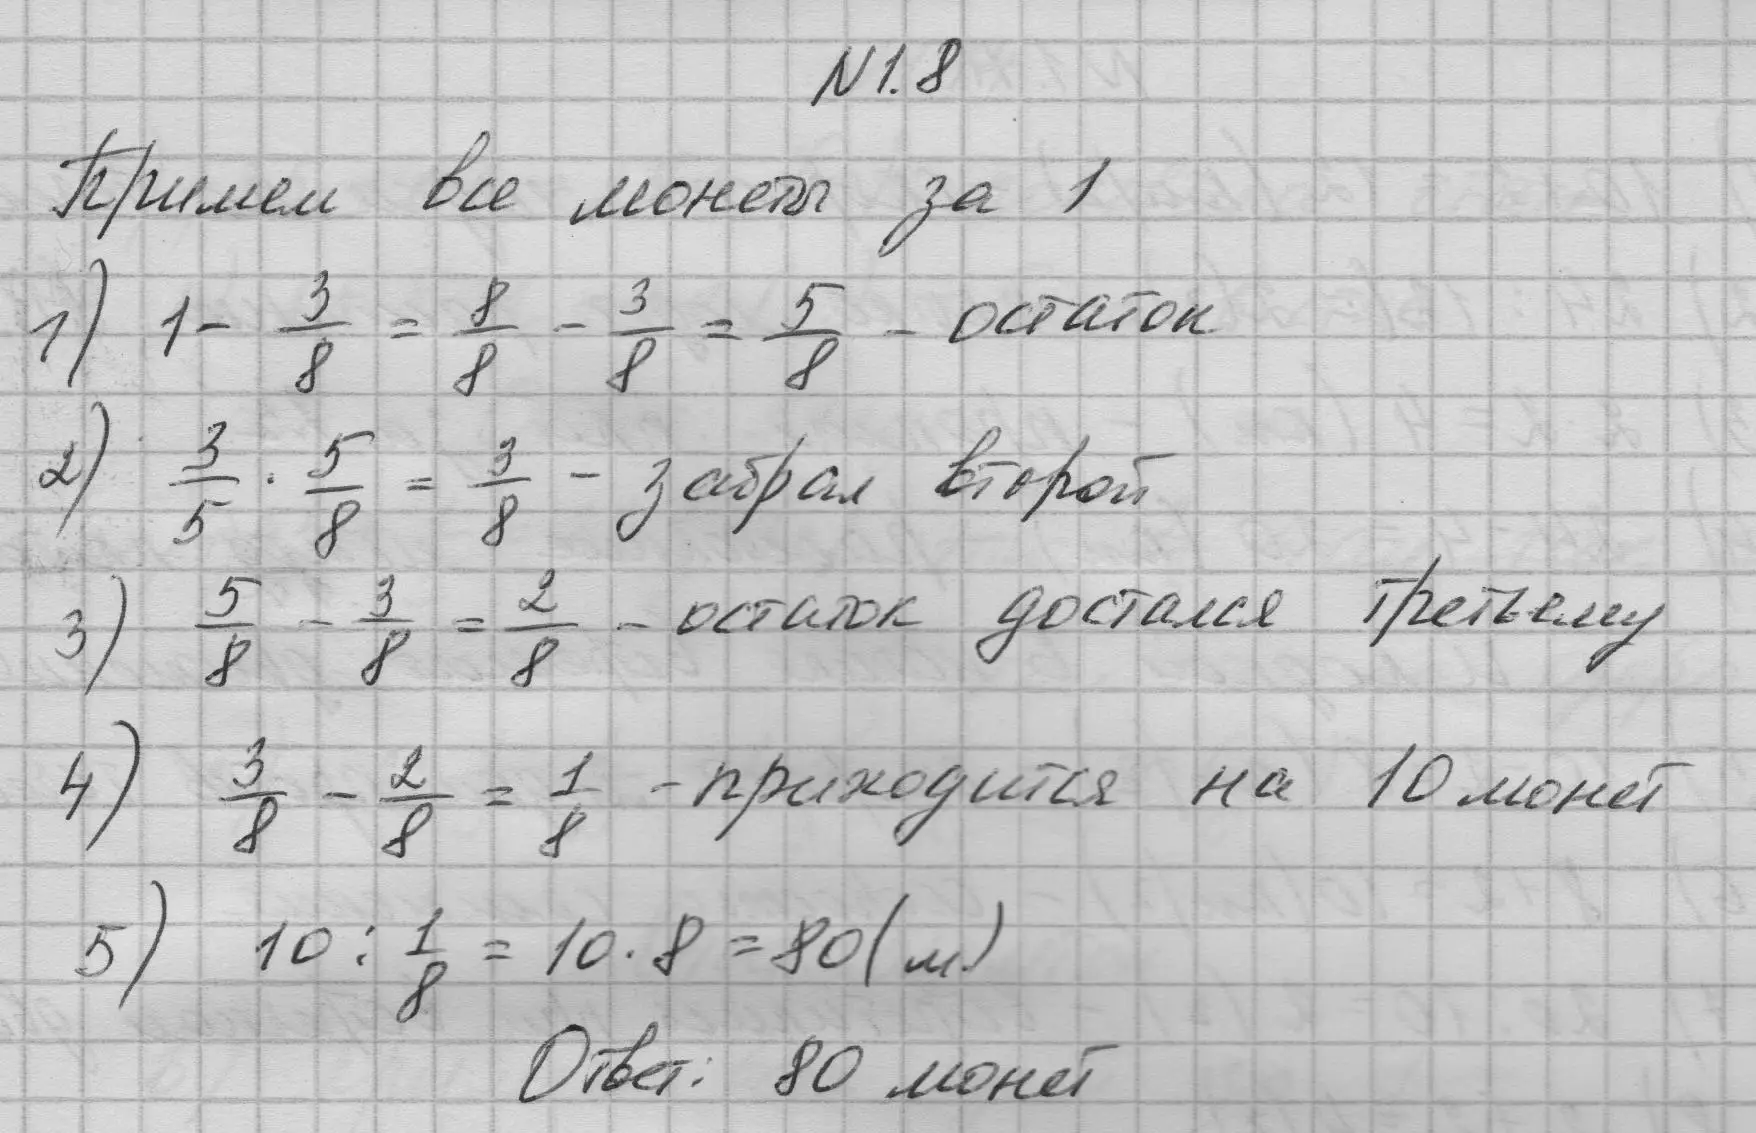 N1.8
Примем все монеты за 1
1) 1 - 3/8 = 8/8 - 3/8 = 5/8 - остаток
2) 3/5 · 5/8 = 3/8 - забрал второй
3) 5/8 - 3/8 = 2/8 - остаток достался третьему
4) 3/8 - 2/8 = 1/8 - приходится на 10 монет
5) 10 : 1/8 = 10 · 8 = 80 (м)
Ответ: 80 монет